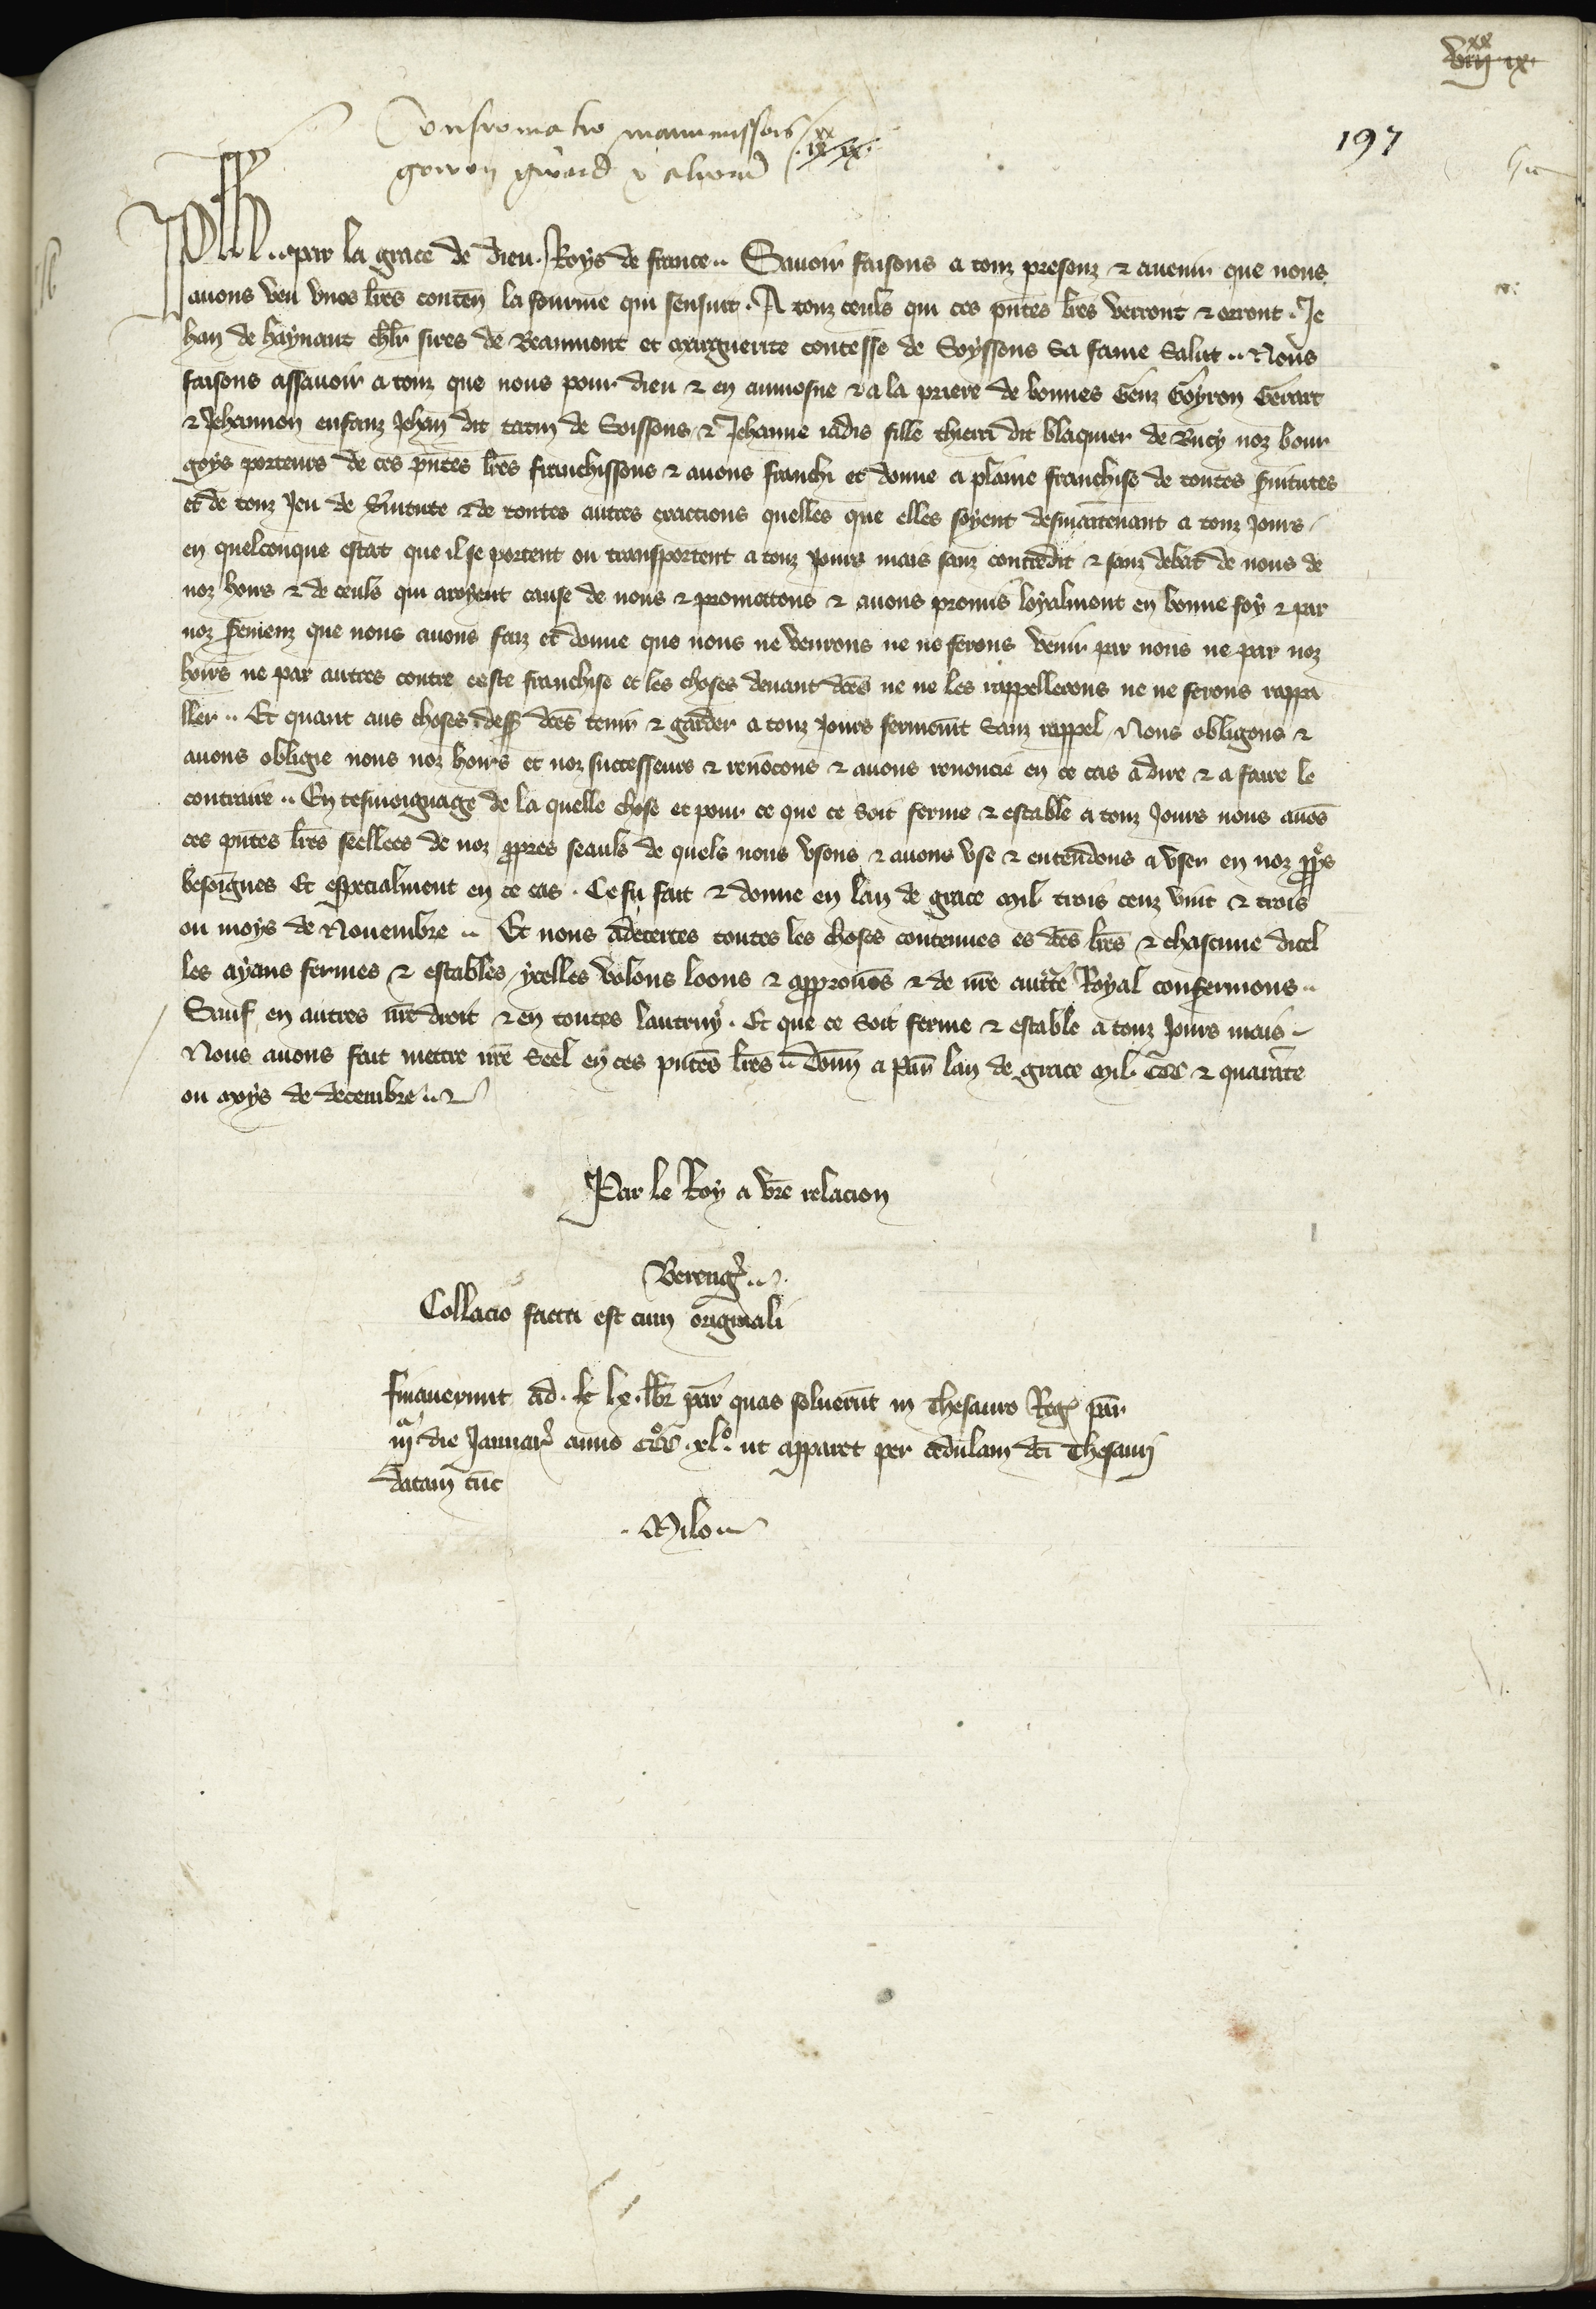 viii xx ix
197
Confirmatio manumissois ix xx ix
goiron girard & alior
Ph .. par la grace de dieu . Roys de france .. Sauoir faisons a touz presenz & auenir que nous
auons veu vnes lres conten la fourme qui sensuit . A touz ceuls qui ces pntes lres verront & orront . Je
han de haynaut chlr sires de Beaumont et marguerite contesse de Soyssons Sa fame Salut .. Nous
faisons assauoir a touz que nous pour dieu & en aumosne & a la priere de bonnes Genz Goyron Gerart
& Jehannon enfanz Jehan dit tatin de Soissons & Jehanne iadis fille thierri dit blaquier de Bucy noz bour
goys porteurs de ces pntes lres franchissons & auons franchi et donne a plaine franchise de toutes seruitutes
et de touz Jeu de seruitute & de toutes autres exactions quelles que elles soyent desmaintenant a touz Jours
en quelconque estat que il se portent ou transportent a touz Jours mais sanz contredit & sanz debat de nous de
noz hoirs & de ceuls qui aroyent cause de nous & promettons & auons promis loyalment en bonne foy & par
noz seremenz que nous auons faiz et donne que nous ne venrons ne ne ferons venir par nous ne par noz
hoirs ne par autres contre ceste franchise et les choses deuant dces ne ne les rappellerons ne ne ferons rappe
ller .. Et quant aus choses dess dces tenir & garder a touz Jours fermemt Sanz rappel Nous obligons &
auons obligie nous noz hoirs et noz successeurs & renocons & auons renoncie en ce cas a dire & a faire le
contraire .. En tesmoignage de la quelle chose et pour ce que ce soit ferme & estable a touz Jours nous auos
ces pntes lres seellees de noz ppres seauls de quels nous vsons & auons vse & entendons a vser en noz ppres
besoignes Et especialment en ce cas . Ce fu fait & donne en lan de grace mil trois cenz vint & trois
ou moys de Nouembre .. Et nous adecertes toutes les choses contenues es dces lres & chascune dicel
les ayans fermes & estables ycelles volons loons & approuos & de nre auctte Royal confermons ..
Sauf en autres nre droit & en toutes lautruy . Et que ce soit ferme & estable a touz Jours mais
Nous auons fait mettre nre Seel en ces pntes lres .. Donn a Par lan de grace mil CCC & quarate
ou moys de decembre ..
Par le Roy a vre relacion
Bereng ..
Collacio facta est cum originali
finauerunt ad . lx . lbr par quas soluerut in Thesauro Reg par
iija die Januar anno CCCo . xlo . ut apparet per cedulam dci Thesauri
datam tuc
. Milo ..